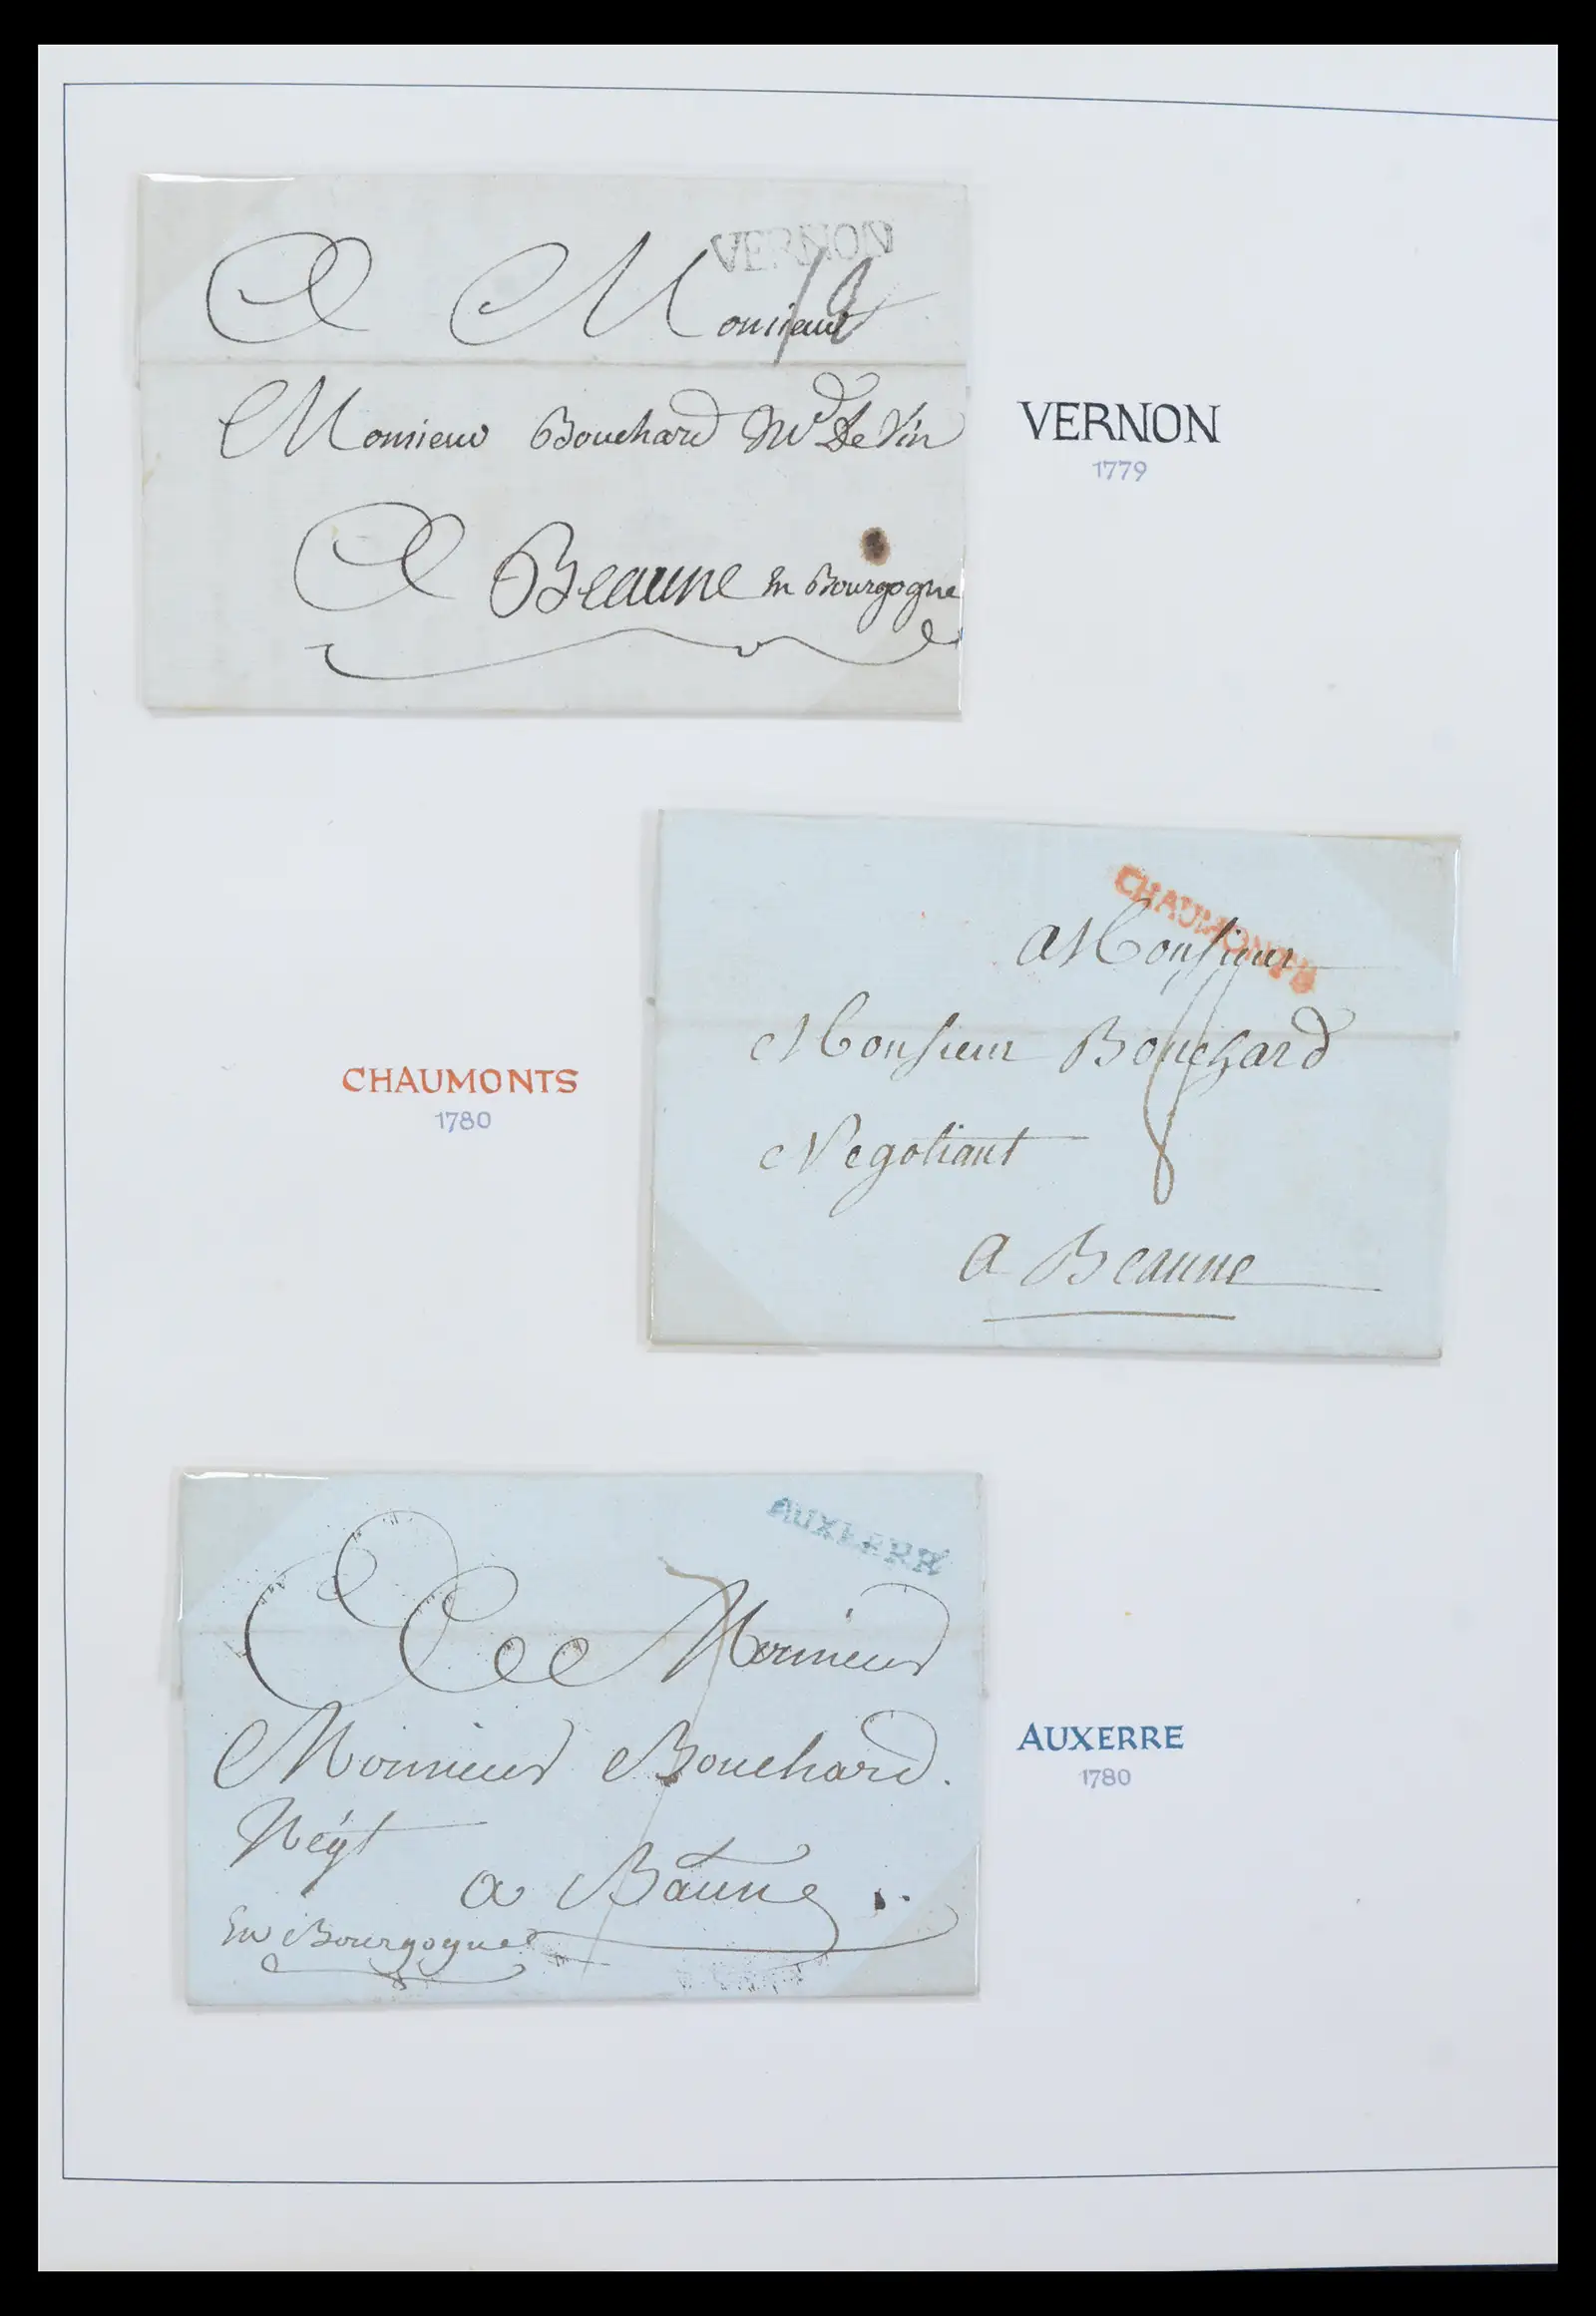 VERNON
A Monsieur
12
Monsieur Bouchard Md De Vin
A Beaune En Bourgogne
VERNON
1779
CHAUMONTS
A Monsieur
Monsieur Bouchard
8
Negotiant
a Beaune
CHAUMONTS
1780
AUXERRE
A Monsieur
7
Monsieur Bouchard.
Négt
a Baune
En Bourgogne
AUXERRE
1780